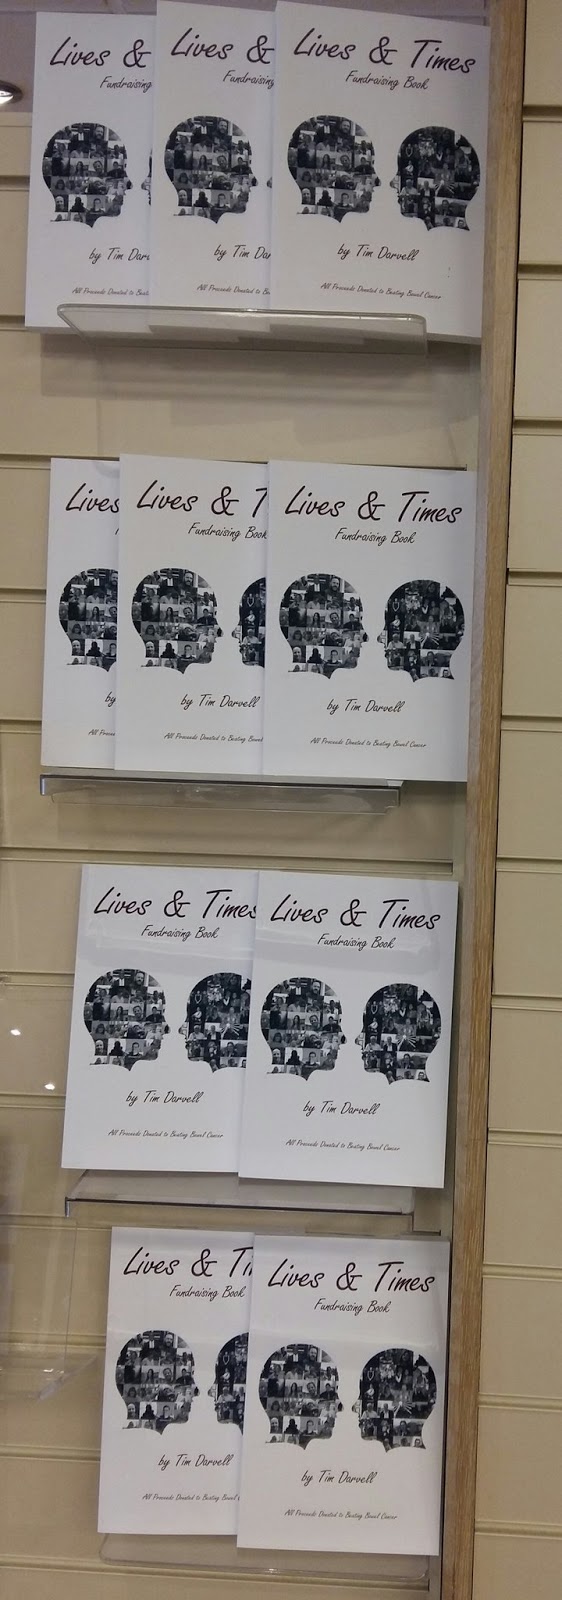 Lives &
Fundraising
by Tim Darv
All Proceeds Donated to Beati
Lives &
Fundraising
by Tim Da
All Proceeds Donated to B
Lives & Times
Fundraising Book
by Tim Darvell
All Proceeds Donated to Beating Bowel Cancer
Lives
by
All Proce
Lives & T
Fundraising Book
by Tim Darvell
All Proceeds Donated to Beating Bowel
Lives & Times
Fundraising Book
by Tim Darvell
All Proceeds Donated to Beating Bowel Cancer
Lives & Times
Fundraising Book
by Tim Darvell
All Proceeds Donated to Beating Bowel Cancer
Lives & Times
Fundraising Book
by Tim Darvell
All Proceeds Donated to Beating Bowel Cancer
Lives & Ti
Fundraising Book
by Tim Darvell
All Proceeds Donated to Beating Bowel
Lives & Times
Fundraising Book
by Tim Darvell
All Proceeds Donated to Beating Bowel Cancer